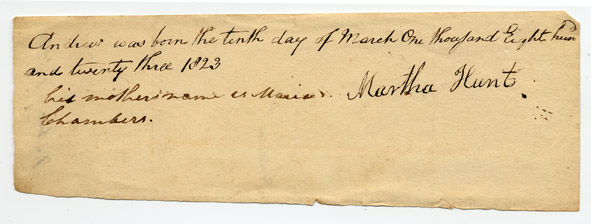 Andrew was born the tenth day of March One thousand Eight hun
and twenty three 1823
his mothers name is Maria Martha Hunt.
Chambers.